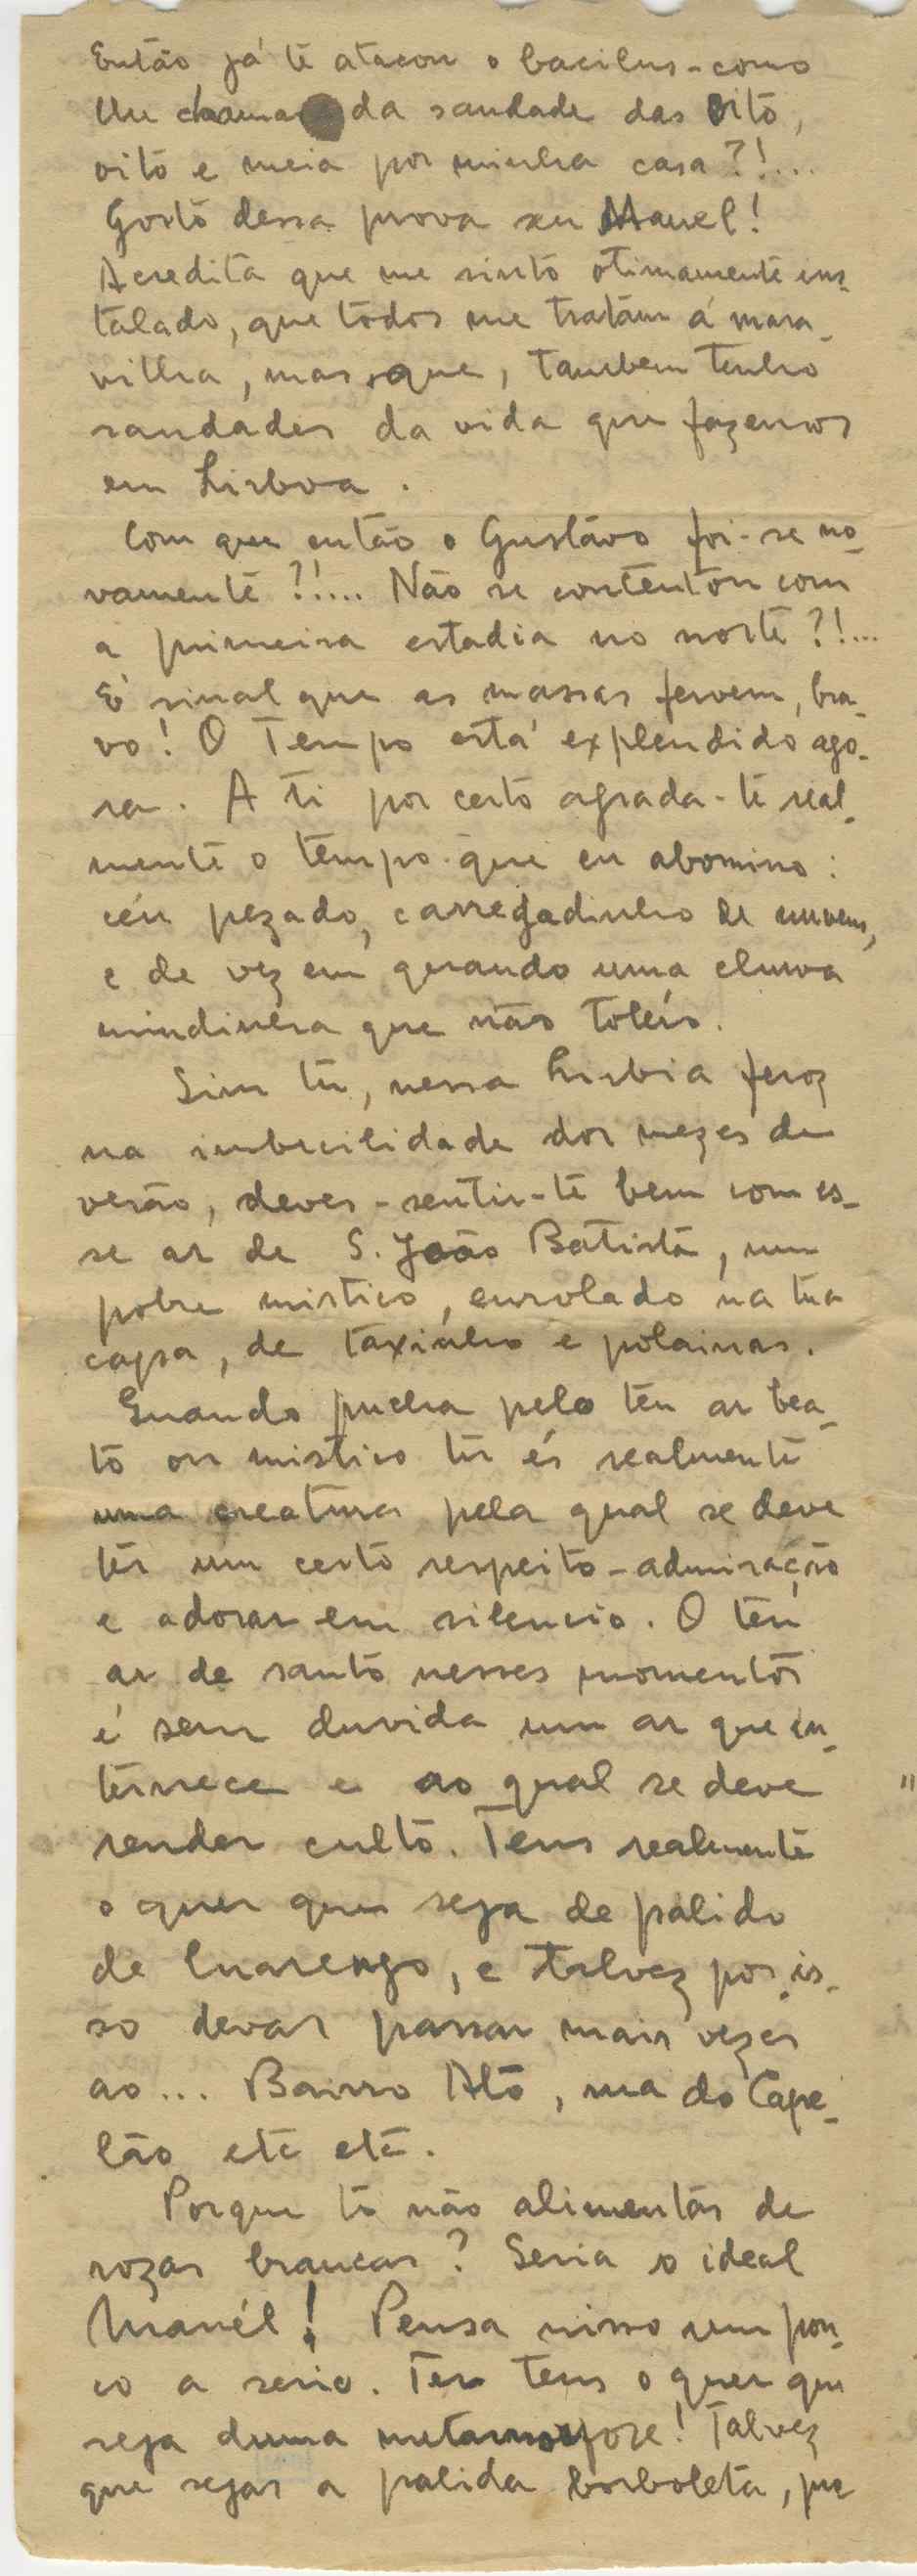 Então já te atacou o bacilus-como
lhe chama da saudade das oito,
oito e meia por minha casa?!...
Gosto dessa prova seu Manel!
Acredita que me sinto otimamente ins-
talado, que todos me tratam á mara-
vilha, mas que, tambem tenho
saudades da vida que fazemos
em Lisboa.
Com que então o Gustavo foi-se no-
vamente?!... Não se contentou com
a primeira estadia no norte?!...
É sinal que as massas fervem, bra-
vo! O Tempo está explendido ago-
ra. A ti por certo agrada-te real-
mente o tempo que eu abomino:
céu pezado, carregadinho de nuvens,
e de vez em quando uma chuva
miudinha que não tolero.
Sim tu, nessa Lisbia feroz
na imbecilidade dos mezes de
verão, deves-sentir-te bem com es-
se ar de S. João Batista, um
pobre mistico, enrolado na tua
capa, de taxinho e polainas.
Quando pucha pelo teu ar bea-
to ou mistico tu és realmente
uma creatura pela qual se deve
ter um certo respeito-admiração
e adorar em silencio. O teu
ar de santo nesses momentos
é sem duvida um ar que en-
ternece e ao qual se deve
render culto. Tens realmente
o quer que seja de pálido
de luarengo, e talvez por is-
so devas passar mais vezes
ao... Bairro Alto, rua do Cape-
lão etc etc.
Porque te não alimentas de
rozas brancas? Seria o ideal
Manél! Pensa nisso um pou-
co a serio. Tu tens o quer que
seja duma metamorfose! Talvez
que sejas a palida borboleta, pre